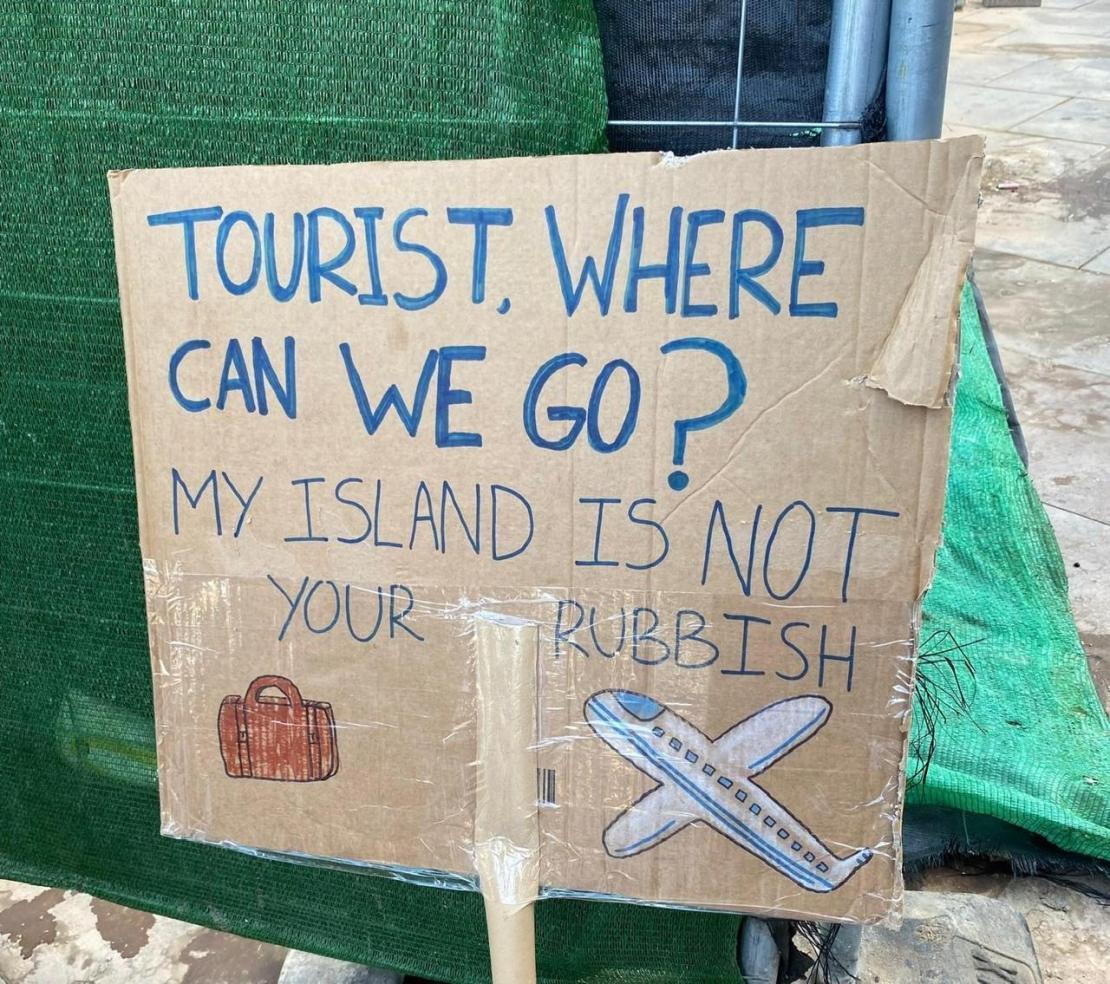 TOURIST, WHERE
CAN WE GO?
MY ISLAND IS NOT
YOUR RUBBISH